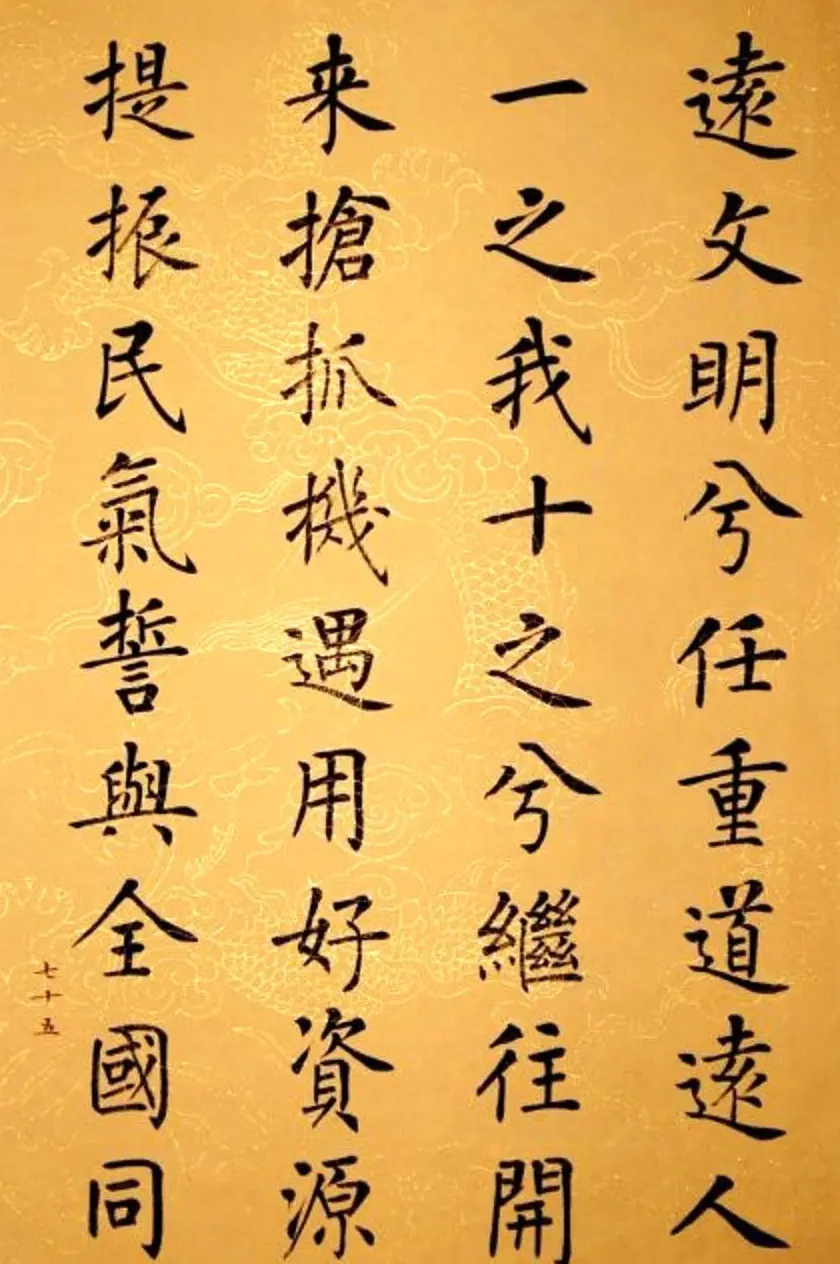 遠文明兮任重道遠人
一之我十之兮繼往開
来搶抓機遇用好資源
提振民氣誓與全國同
七十五